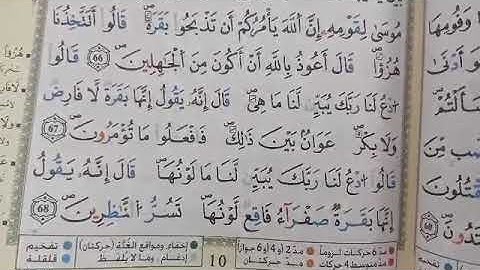 مُوسَىٰ لِقَوْمِهِۦٓ إِنَّ ٱللَّهَ يَأْمُرُكُمُۥٓ أَن تَذْبَحُوا۟ بَقَرَةًۖ قَالُوٓا۟ أَتَتَّخِذُنَا
هُزُؤًاۖ قَالَ أَعُوذُ بِٱللَّهِ أَنْ أَكُونَ مِنَ ٱلْجَٰهِلِينَۖ 66 قَالُوا۟
ٱدْعُ لَنَا رَبَّكَ يُبَيِّن لَّنَا مَا هِىَۖ قَالَ إِنَّهُۥ يَقُولُ إِنَّهَا بَقَرَةٌ لَّا فَارِضٌ
وَلَا بِكْرٌۖ عَوَانٌۢ بَيْنَ ذَٰلِكَۖ فَٱفْعَلُوا۟ مَا تُؤْمَرُونَۖ 67
قَالُوا۟ ٱدْعُ لَنَا رَبَّكَ يُبَيِّن لَّنَا مَا لَوْنُهَاۖ قَالَ إِنَّهُۥ يَقُولُ
إِنَّهَا بَقَرَةٌ صَفْرَآءُ فَاقِعٌ لَّوْنُهَاۖ تَسُرُّ ٱلنَّٰظِرِينَۖ 68
مدّ 6 حركات لزوماً مدّ 2 أو 4 أو 6 جوازاً 10 إخفاء، ومواقع الغنّة (حركتان) تفخيم
مدّ متوسط 4 حركات مدّ حركتان إدغام، وما لا يلفظ قلقلة